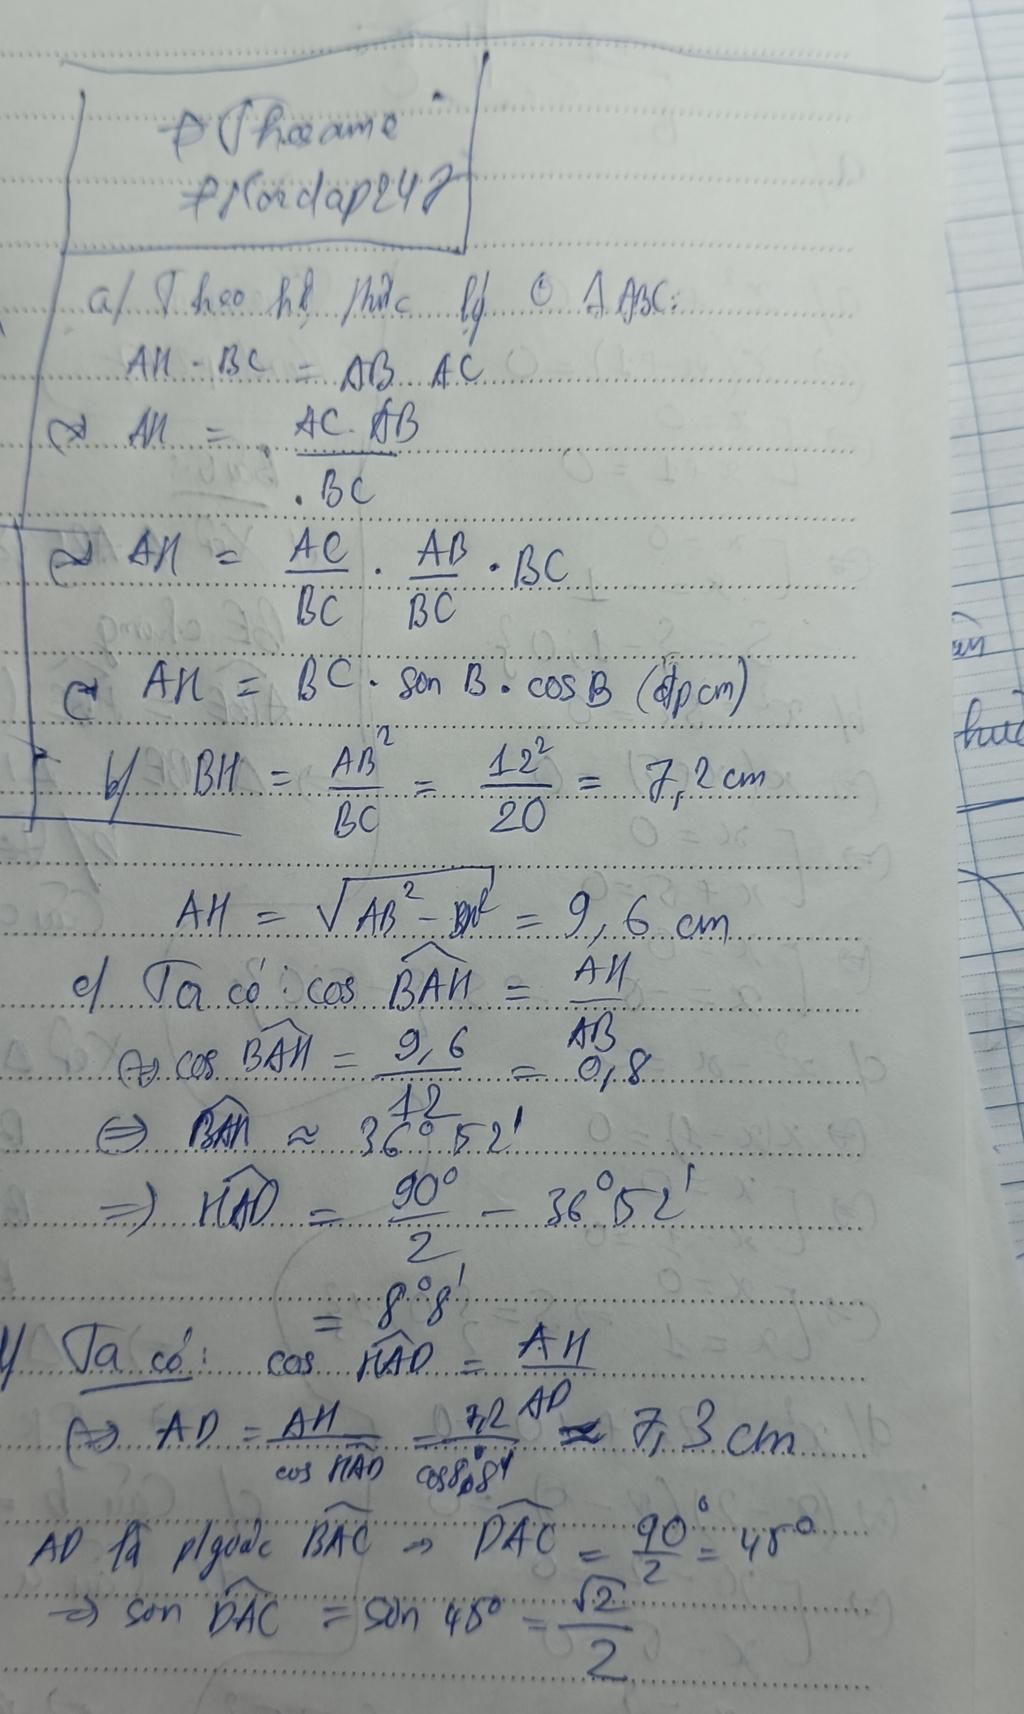 a/ Theo hệ thức lg ở Δ ABC:
AH . BC = AB AC
AH = AC . AB / BC
AH = AC/BC . AB/BC . BC
AH = BC . sin B . cos B (đpcm)
b/ BH = AB² / BC = 12² / 20 = 7,2 cm
AH = √(AB² - BH²) = 9,6 cm
c/ Ta có: cos BAH = AH / AB
⇔ cos BAH = 9,6 / 12 = 0,8
⇔ BAH ≈ 36°52'
=> HAD = 90° / 2 - 36°52'
= 8°8'
Ta có: cos HAD = AH / AD
⇔ AD = AH / cos HAD = 7,2 / cos 8°8' ≈ 7,3 cm
AD là p/giác BAC → DAC = 90° / 2 = 45°
=> sin DAC = sin 45° = √2 / 2